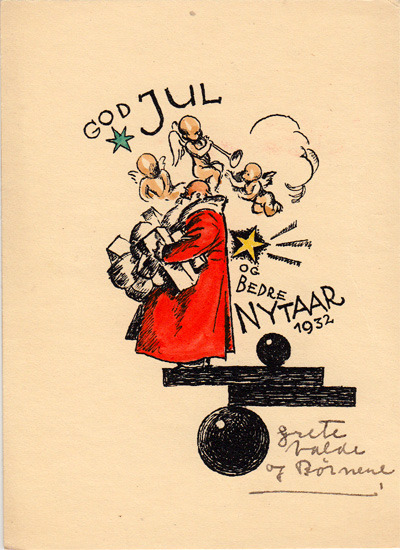 GOD JUL
OG
BEDRE
NYTAAR
1932
Grete
Valde
og Börnene